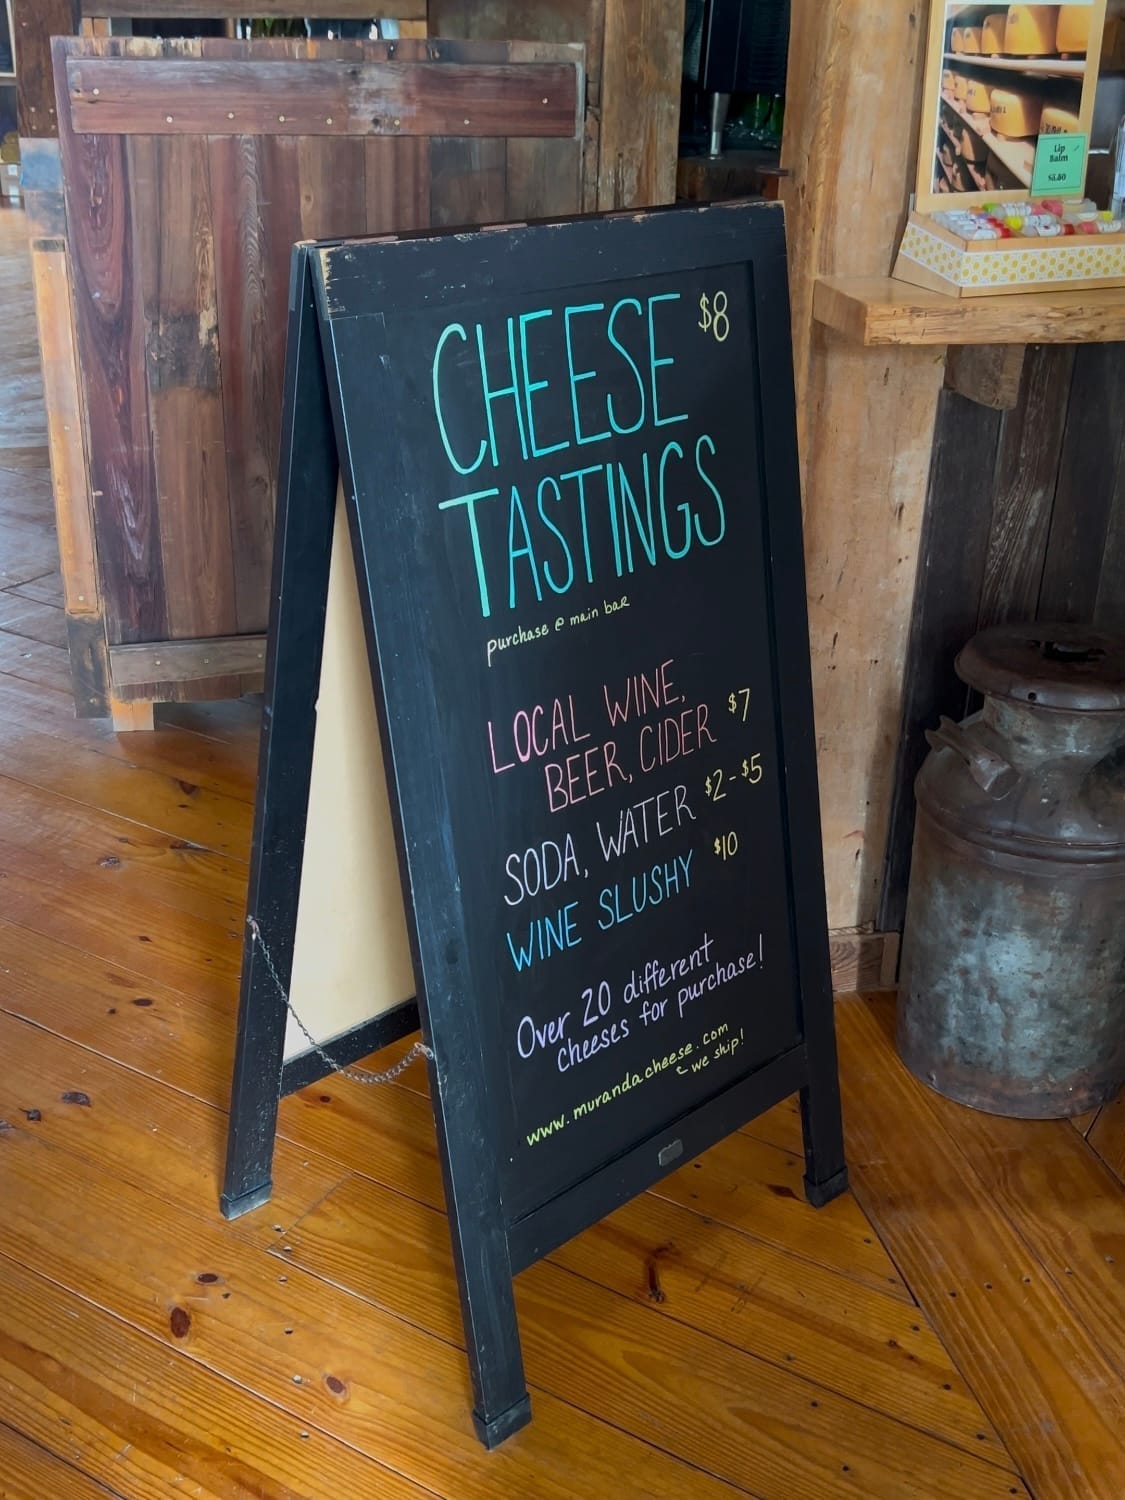 CHEESE $8
TASTINGS
purchase @ main bar
LOCAL WINE,
BEER, CIDER $7
SODA, WATER $2-$5
WINE SLUSHY $10
Over 20 different
cheeses for purchase!
www.murandacheese.com
we ship!
Lip
Balm
$3.50